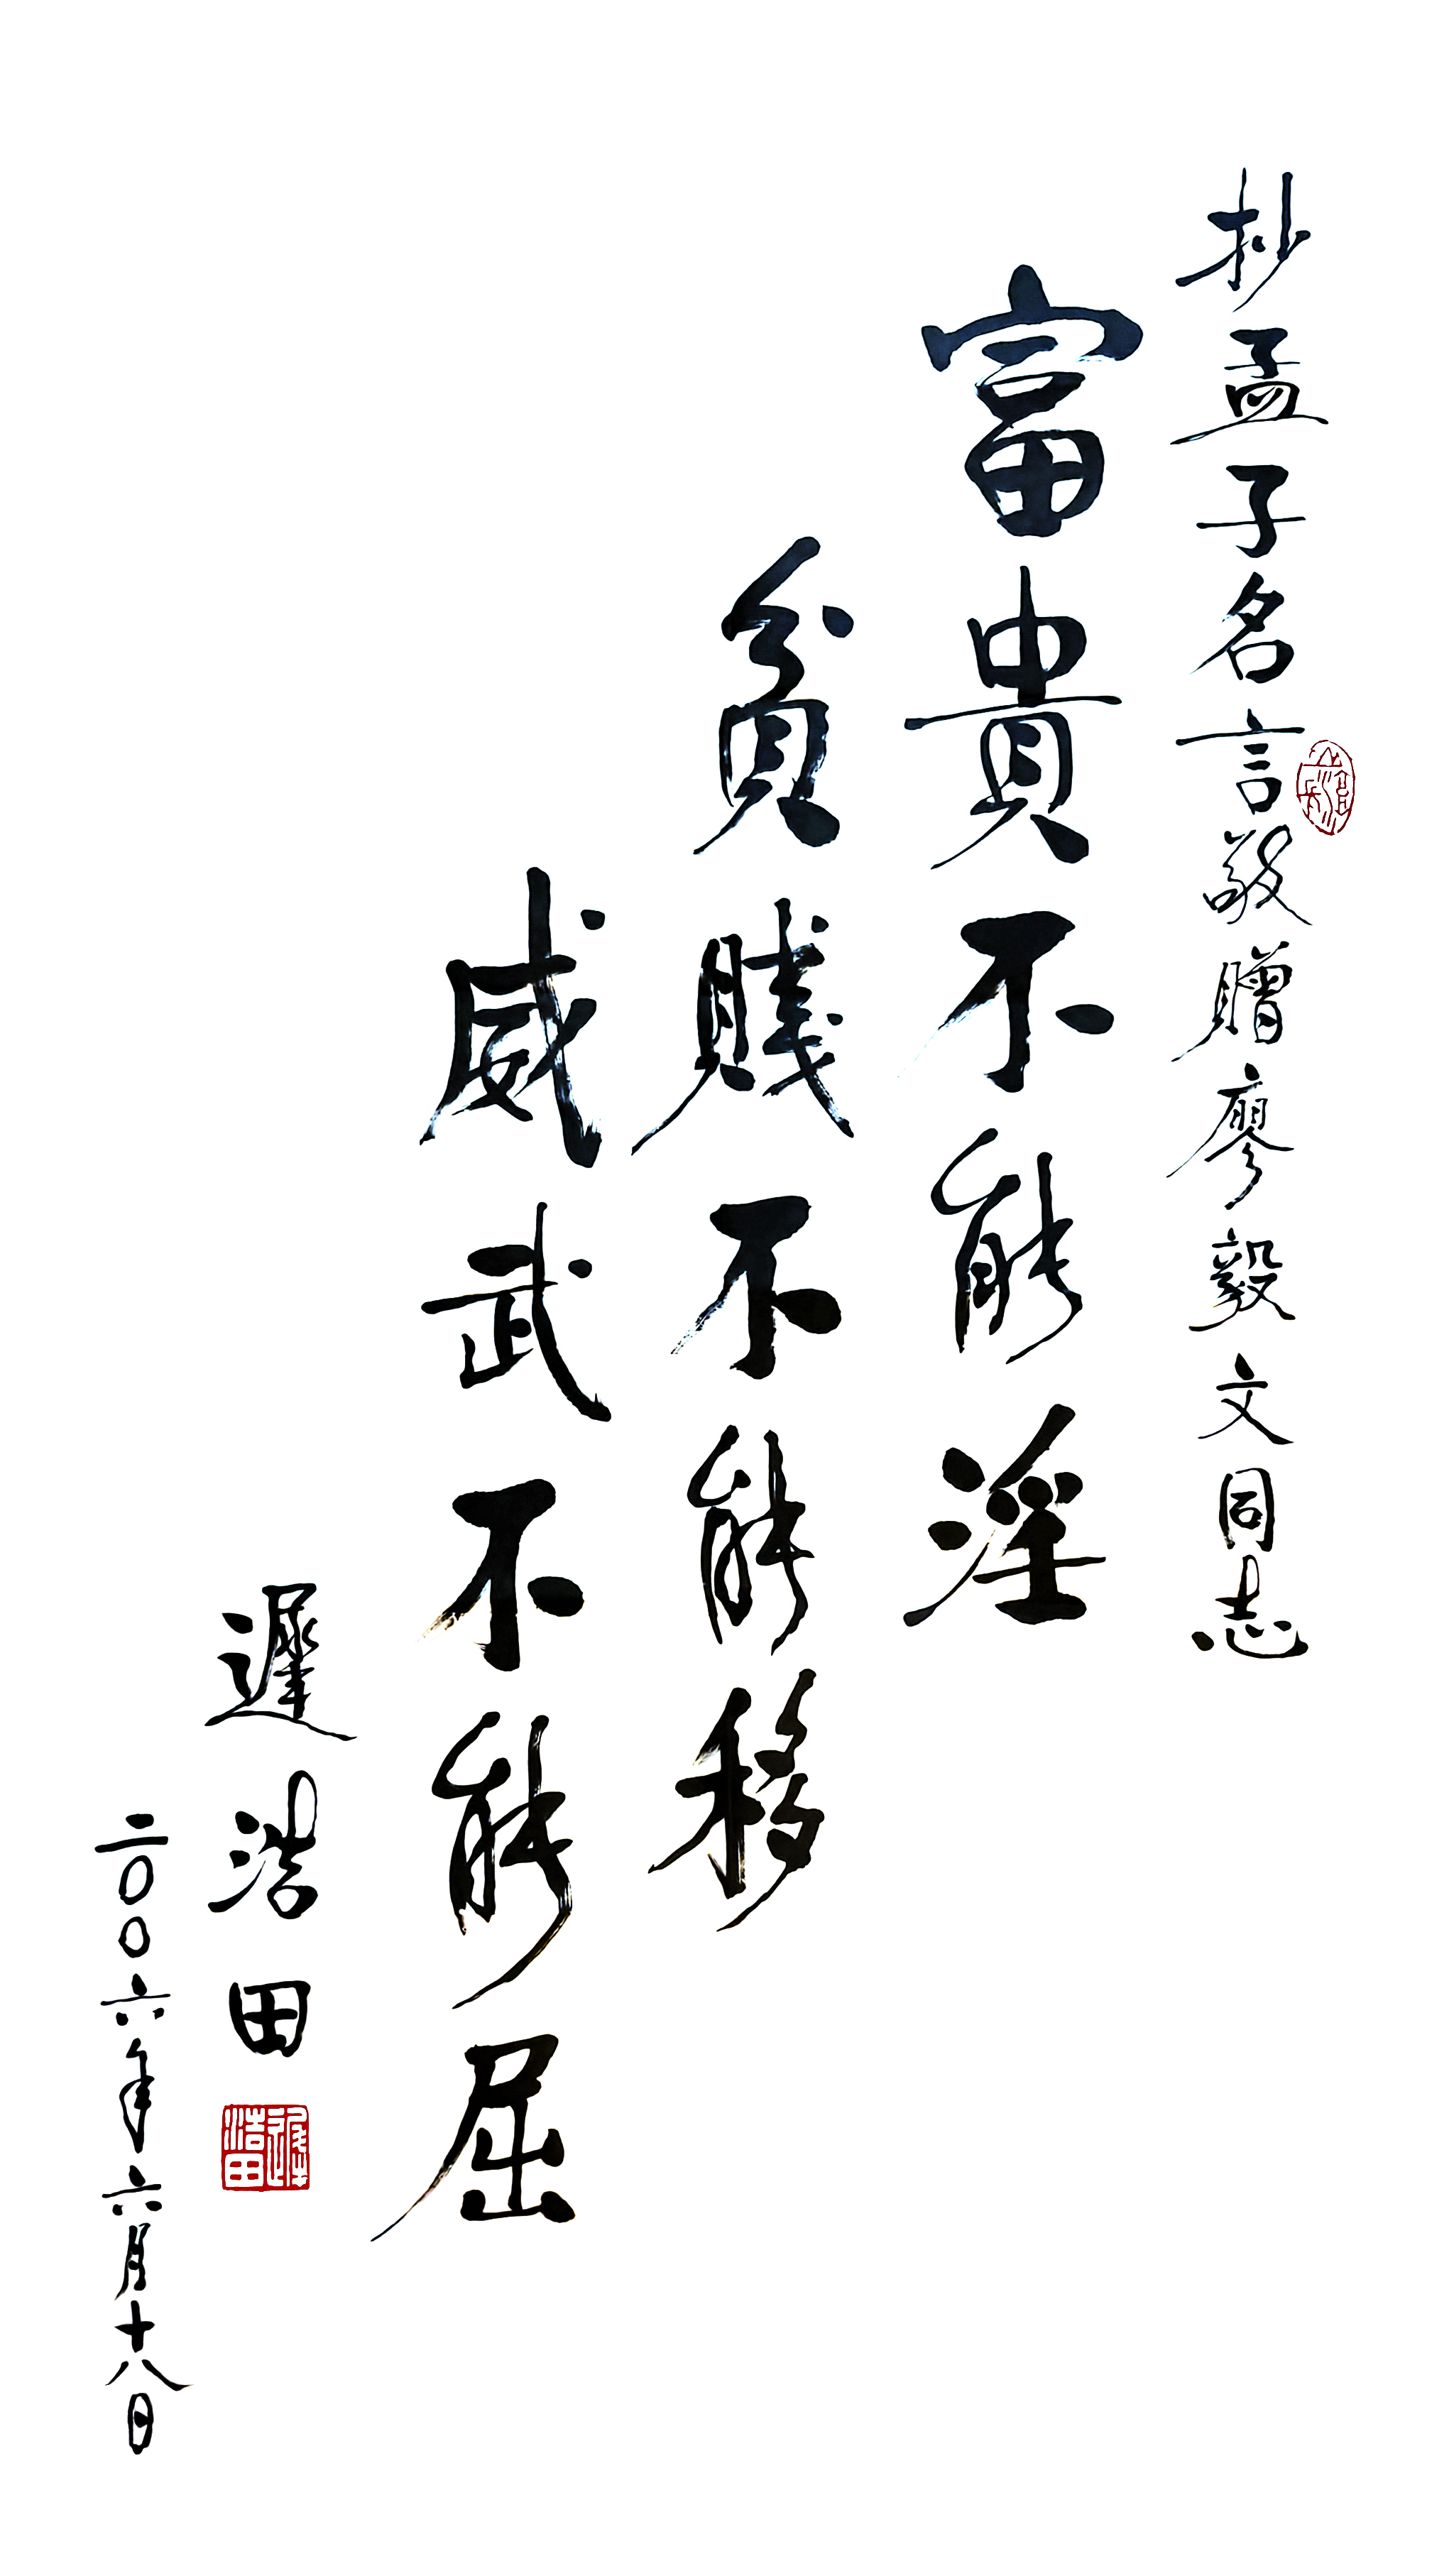 抄孟子名言敬贈廖毅文同志
富貴不能淫
貧賤不能移
威武不能屈
遲浩田
遲浩田
二〇〇六年六月十八日